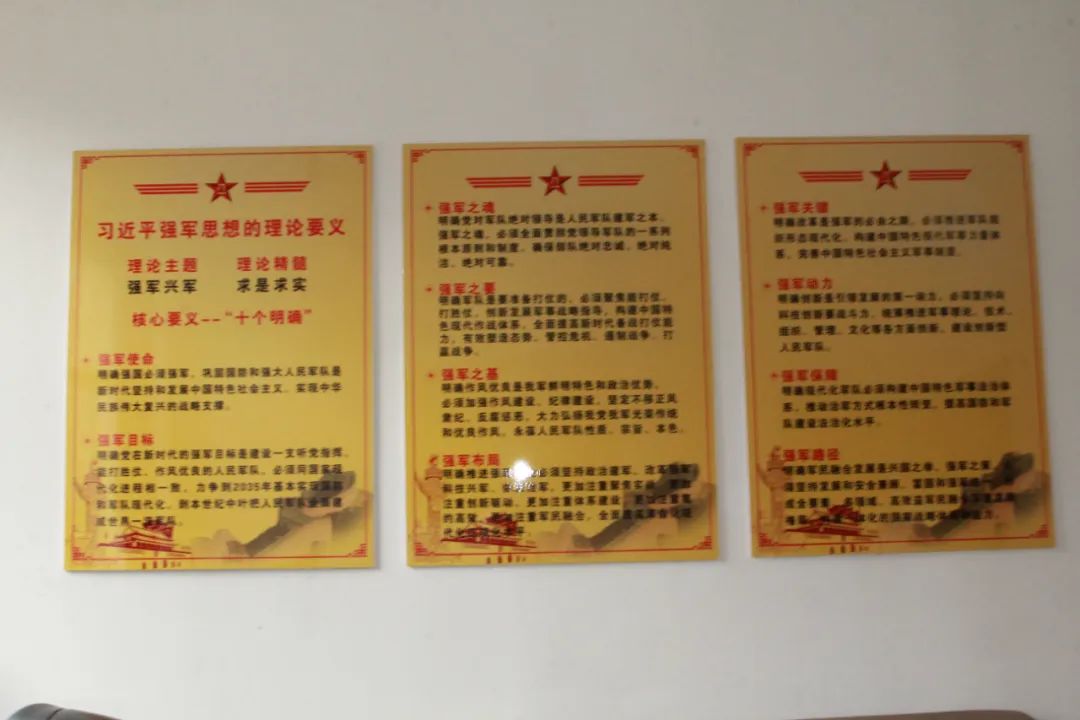 习近平强军思想的理论要义
理论主题 理论精髓
强军兴军 求是求实
核心要义--“十个明确”
强军使命
明确强国必须强军，巩固国防和强大人民军队是
新时代坚持和发展中国特色社会主义、实现中华
民族伟大复兴的战略支撑。
强军目标
明确党在新时代的强军目标是建设一支听党指挥、
能打胜仗、作风优良的人民军队，必须同国家现
代化进程相一致，力争到2035年基本实现国防
和军队现代化，到本世纪中叶把人民军队全面建
成世界一流军队。
强军之魂
明确党对军队绝对领导是人民军队建军之本、
强军之魂，必须全面贯彻党领导军队的一系列
根本原则和制度，确保部队绝对忠诚、绝对纯
洁、绝对可靠。
强军之要
明确军队是要准备打仗的，必须聚焦能打仗、
打胜仗，创新发展军事战略指导，构建中国特
色现代作战体系，全面提高新时代备战打仗能
力，有效塑造态势、管控危机、遏制战争、打
赢战争。
强军之基
明确作风优良是我军鲜明特色和政治优势，
必须加强作风建设、纪律建设，坚定不移正风
肃纪、反腐惩恶，大力弘扬我党我军光荣传统
和优良作风，永葆人民军队性质、宗旨、本色。
强军布局
明确推进强 必须坚持政治建军、改革强军
科技兴军、 更加注重聚焦实战、更加
注重创新驱动、更加注重体系建设、更加注重集
约高效、更加注重军民融合，全面提高革命化现
代化正规化水平。
强军关键
明确改革是强军的必由之路，必须推进军队组
织形态现代化，构建中国特色现代军事力量体
系，完善中国特色社会主义军事制度。
强军动力
明确创新是引领发展的第一动力，必须坚持向
科技创新要战斗力，统筹推进军事理论、技术、
组织、管理、文化等各方面创新，建设创新型
人民军队。
强军保障
明确现代化军队必须构建中国特色军事法治体
系，推动治军方式根本性转变，提高国防和军
队建设法治化水平。
强军路径
明确军民融合发展是兴国之举、强军之策，
必须坚持发展和安全兼顾、富国和强军统一，
形成全要素、多领域、高效益军民融合深度发展
格局，构建一体化的国家战略体系和能力。